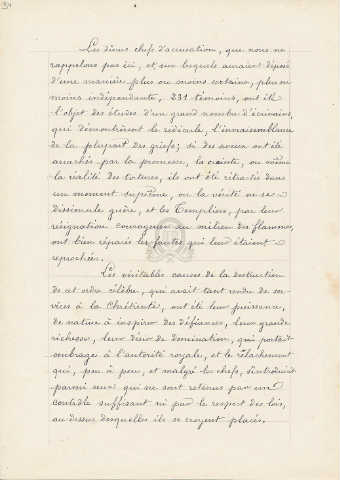 Les divers chefs d'accusation, que nous ne
rappelons pas ici, et, sur lesquels auraient déposé
d'une manière plus ou moins certaine, plus ou
moins indépendante, 231 témoins, ont été
l'objet des études d'un grand nombre d'écrivains,
qui démontrèrent le ridicule, l'invraisemblance
de la plupart des griefs; si des aveux ont été
arrachés par la promesse, la crainte, ou même
la réalité des tortures, ils ont été rétractés dans
un moment suprême, où la vérité ne se
dissimule guère, et les Templiers, par leur
résignation courageuse au milieu des flammes,
ont bien réparé les fautes qui leur étaient
reprochées.
Les véritables causes de la destruction
de cet ordre célèbre, qui avait tant rendu de ser-
vices à la Chrétienté, ont été leur puissance,
de nature à inspirer des défiances, leur grande
richesse, leur désir de domination, qui portait
ombrage à l'autorité royale, et le relâchement
qui, peu à peu, et malgré les chefs, s'introduisit
parmi ceux qui ne sont retenus par un
contrôle suffisant ni par le respect des lois,
au dessus desquelles ils se croyent placés.